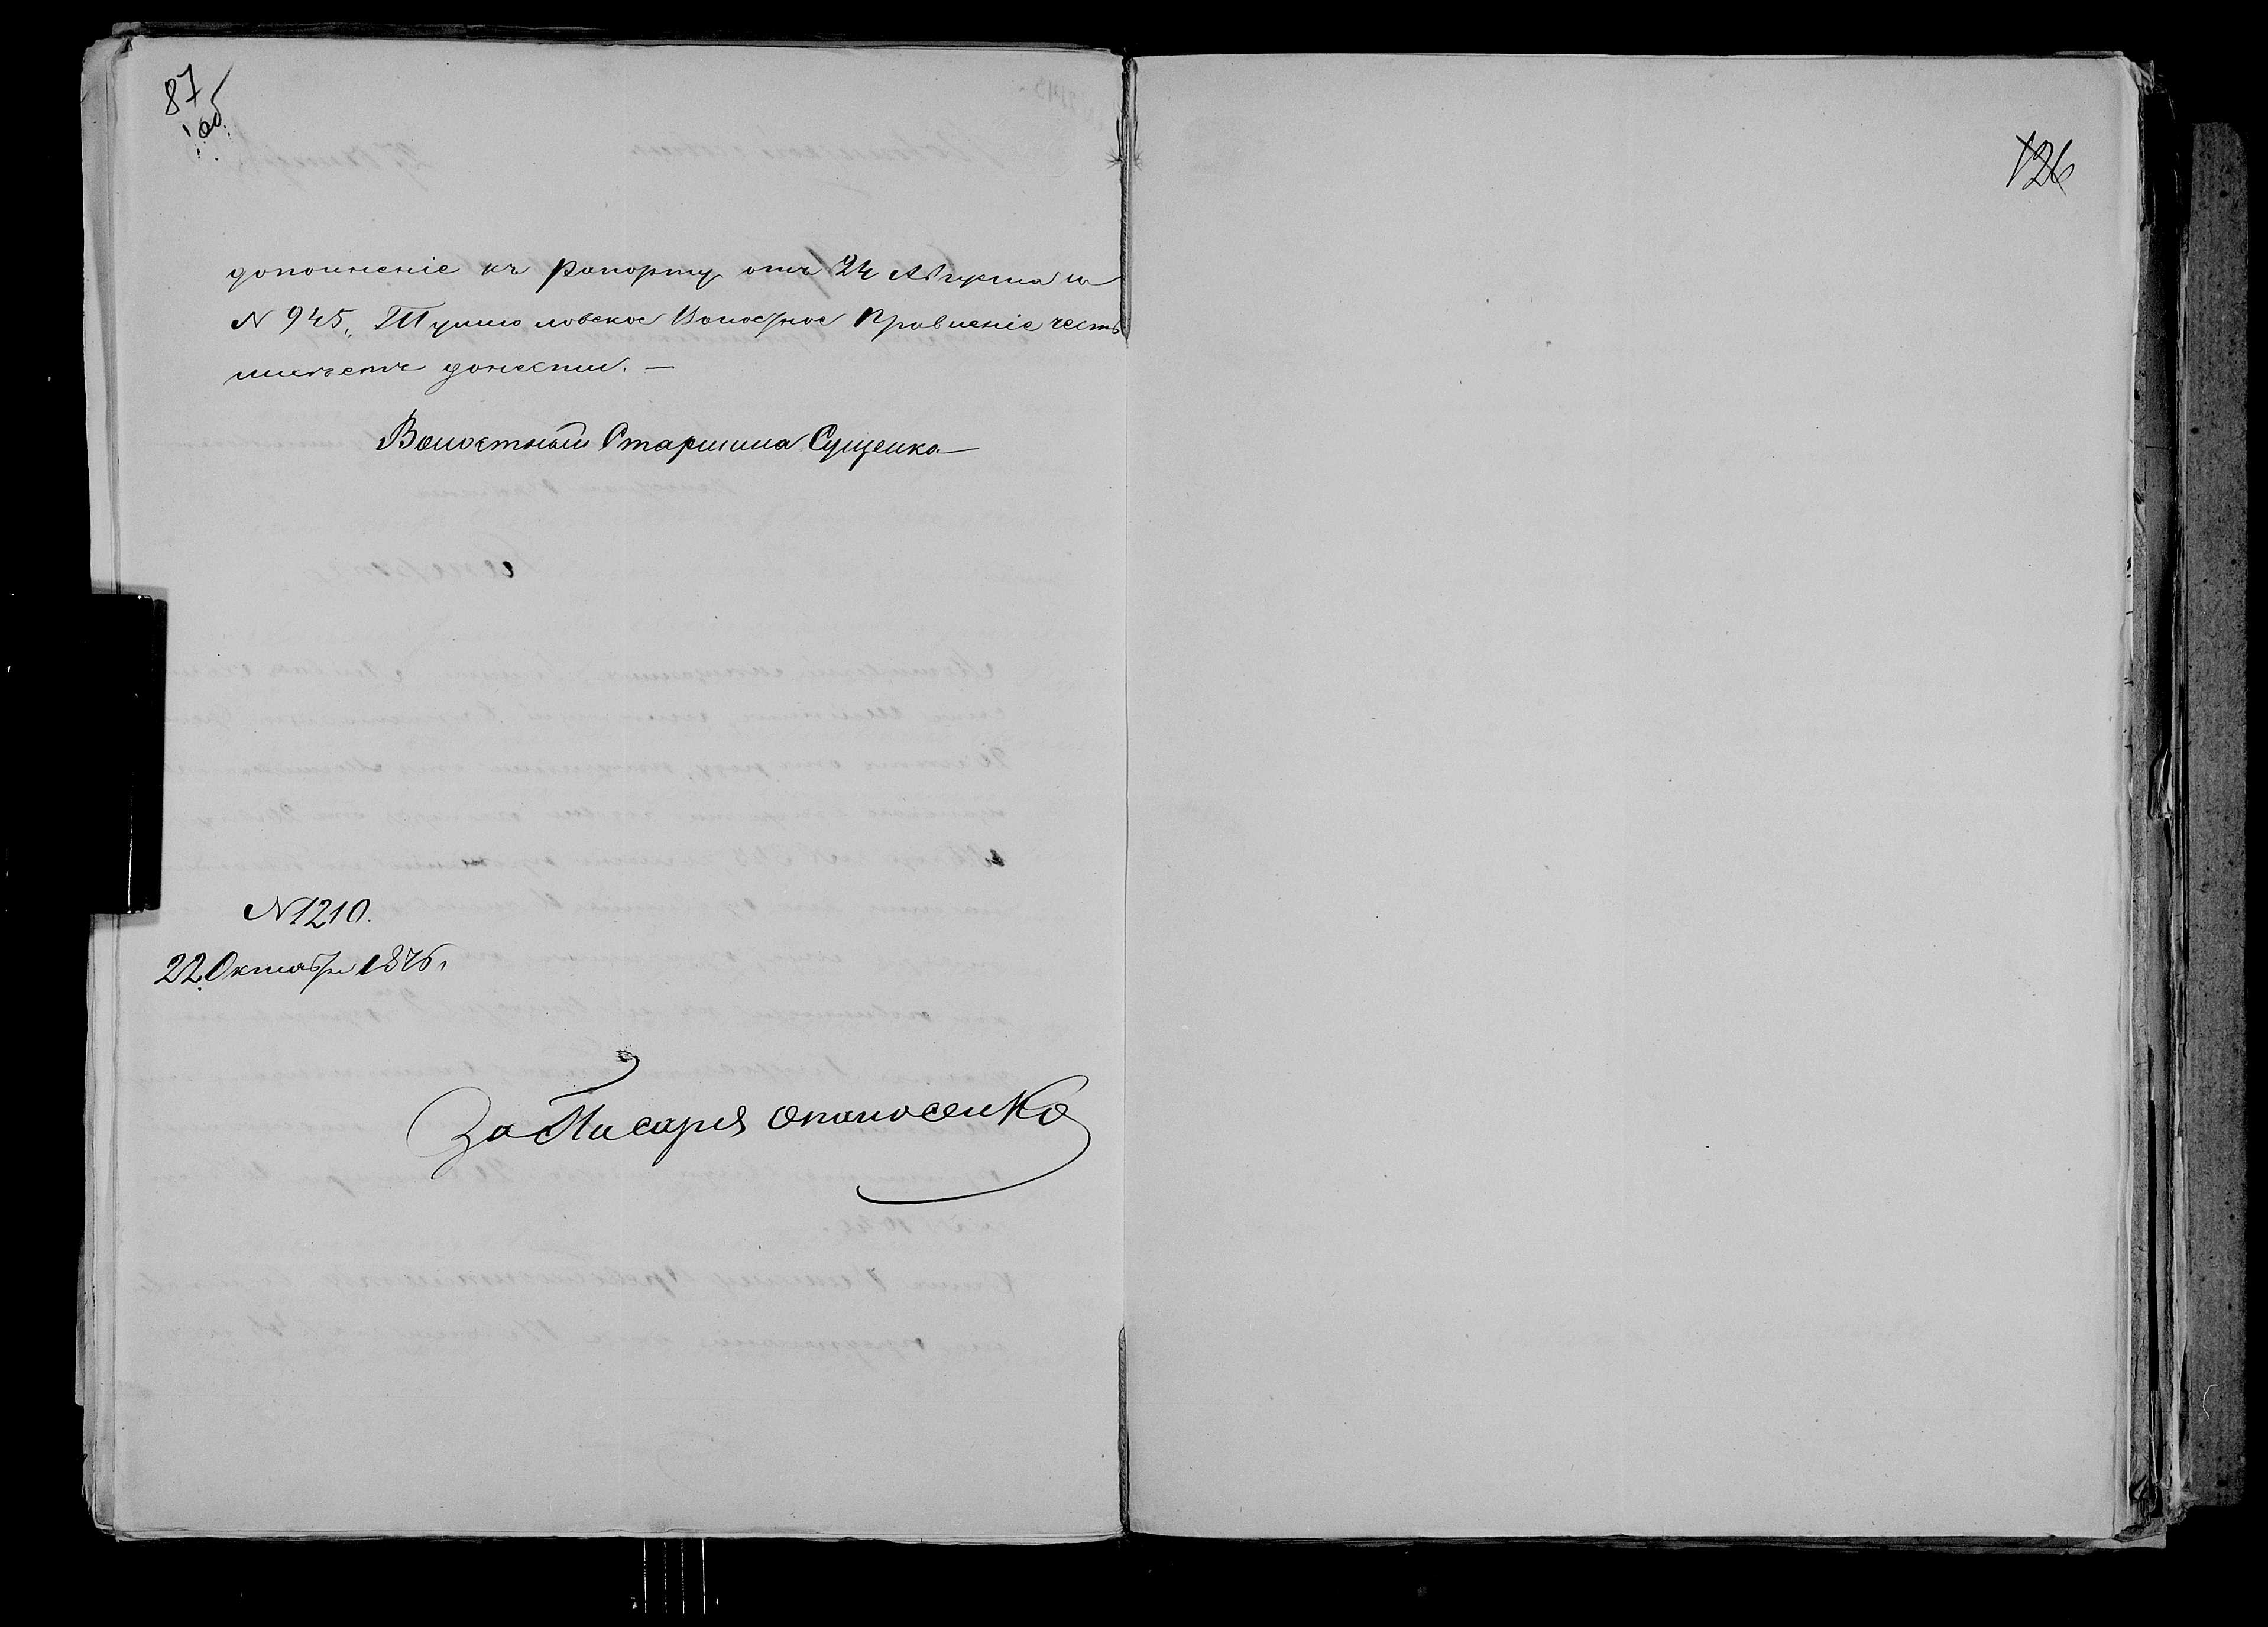 87
об.
дополненіе къ рапорту отъ 24 Августа за
№ 945, Волостное Правленіе честь
имѣетъ донести. —
Волостный Старшина Сущенко
№ 1210.
22 Октября 1876.
За Писаря Опанасенко
126